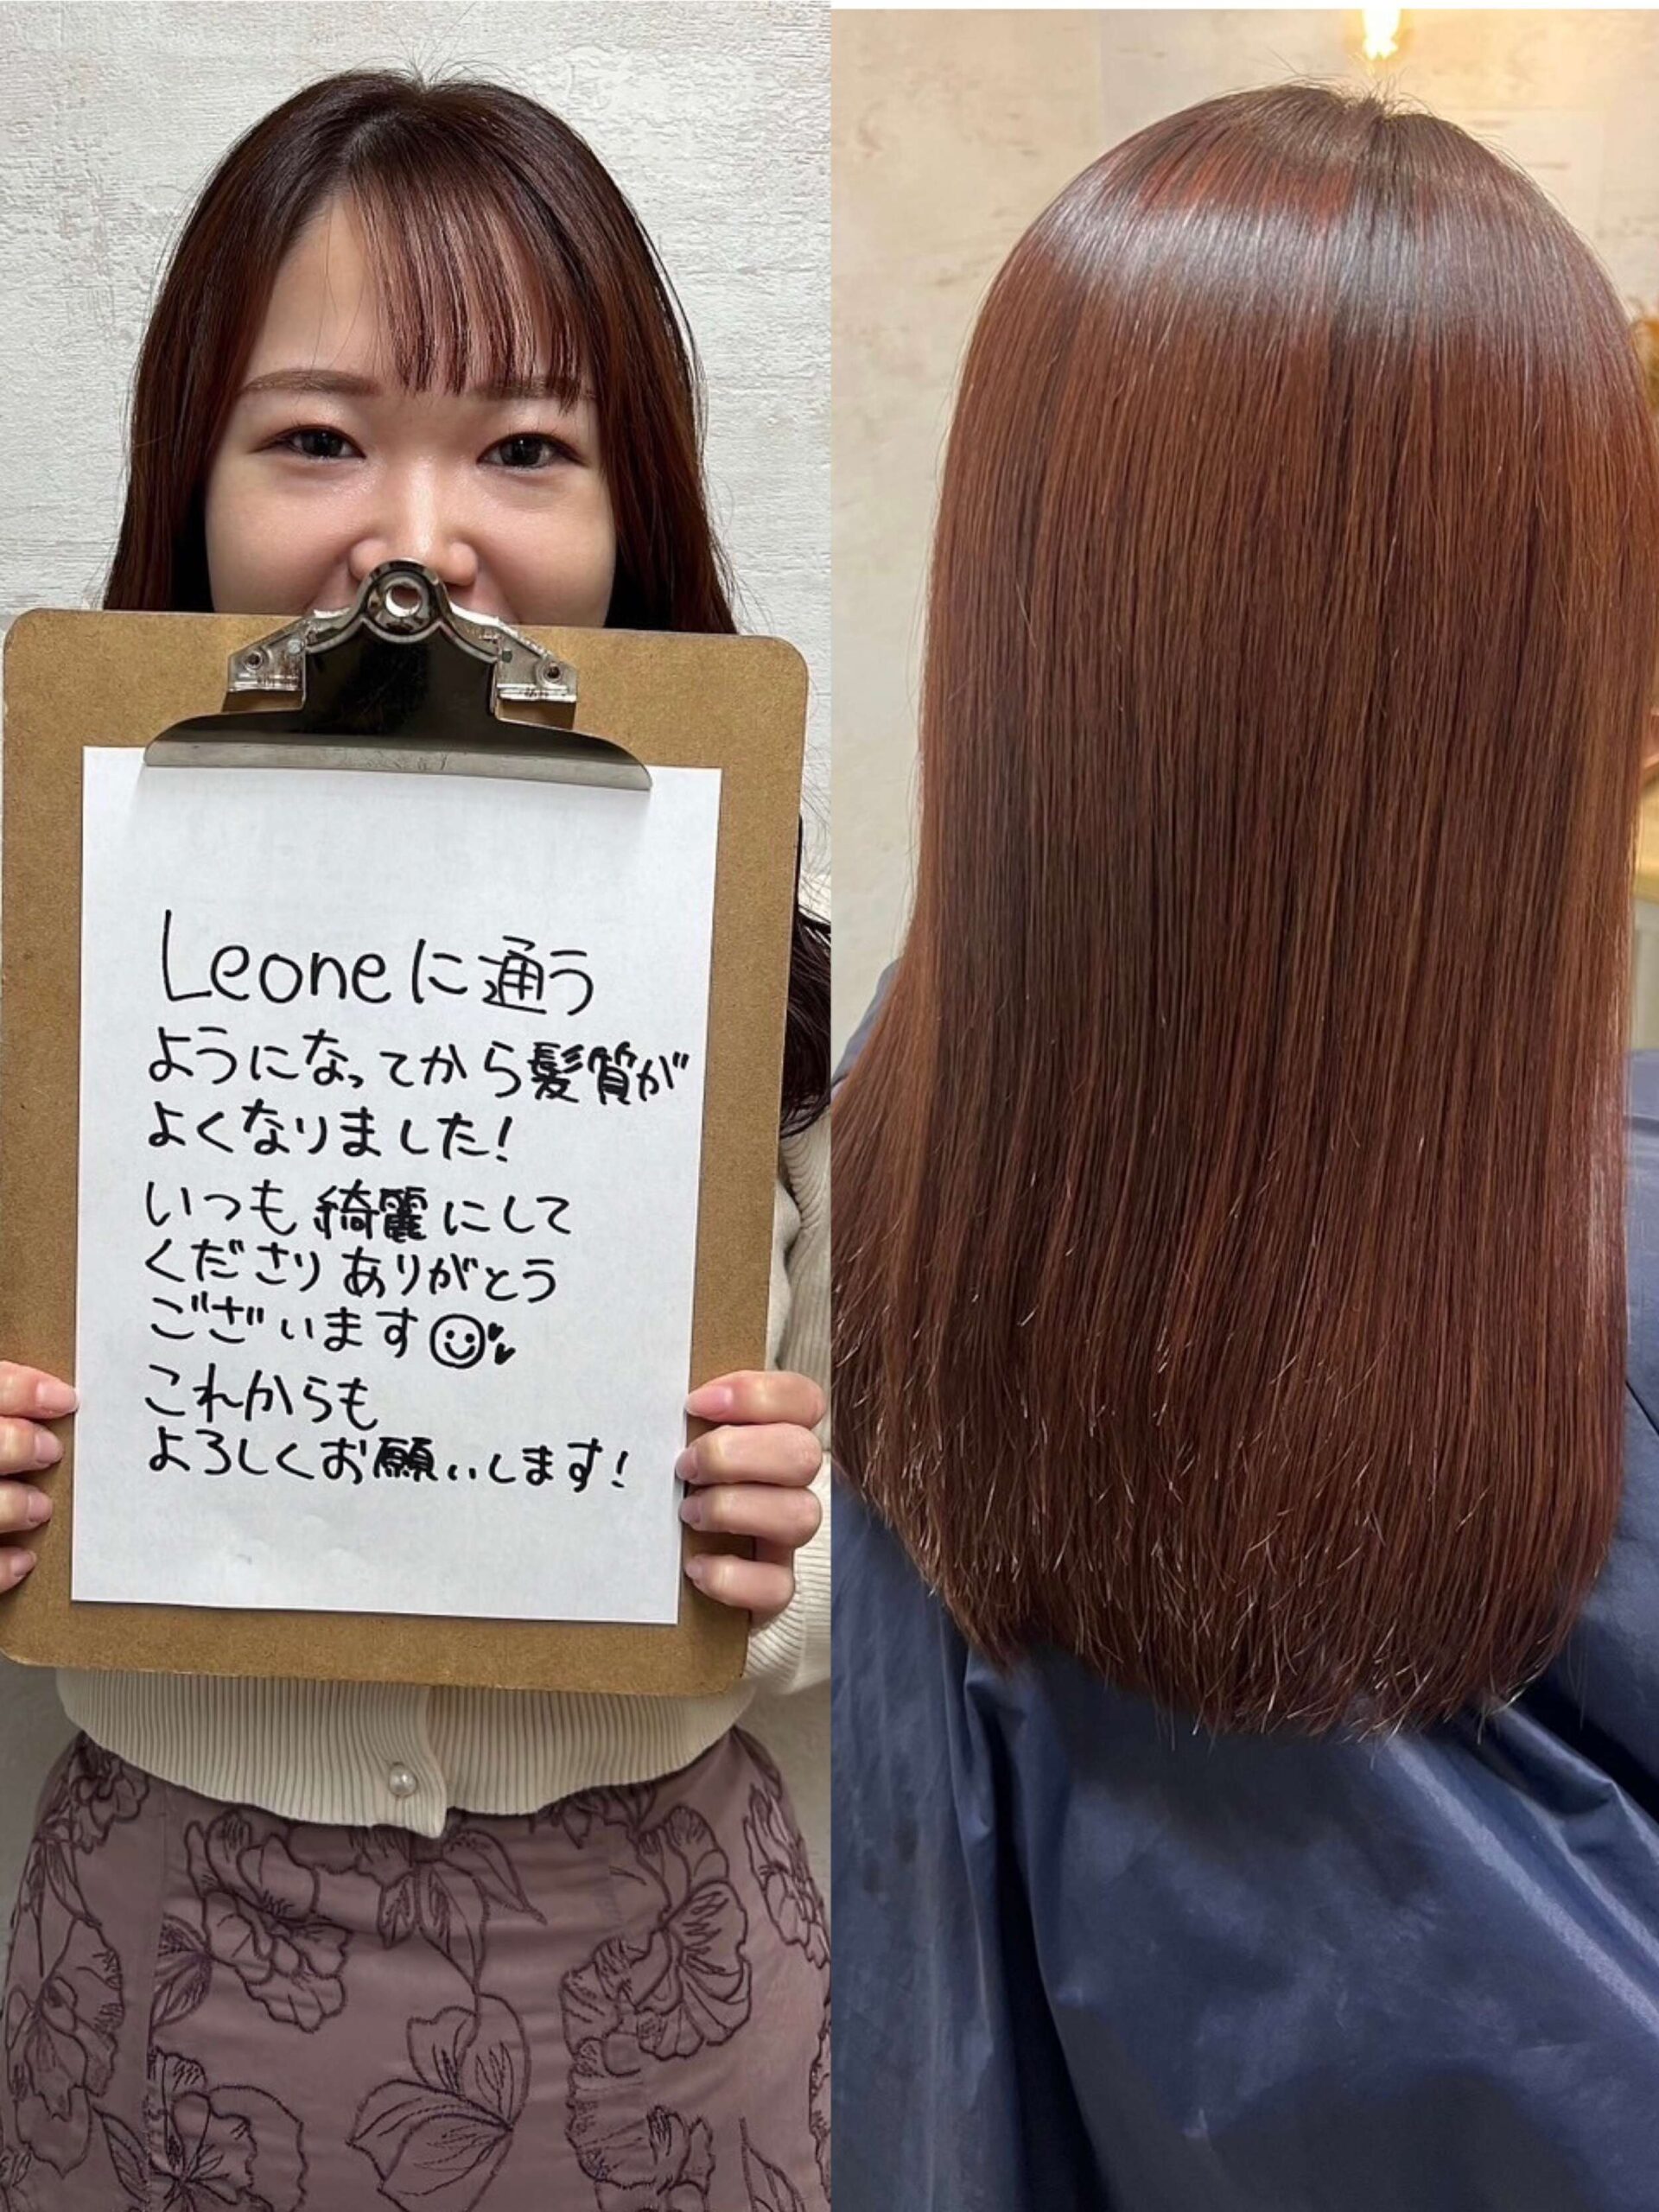 Leoneに通う
ようになってから髪質が
よくなりました!
いつも綺麗にして
くださりありがとう
ございます
これからも
よろしくお願いします!